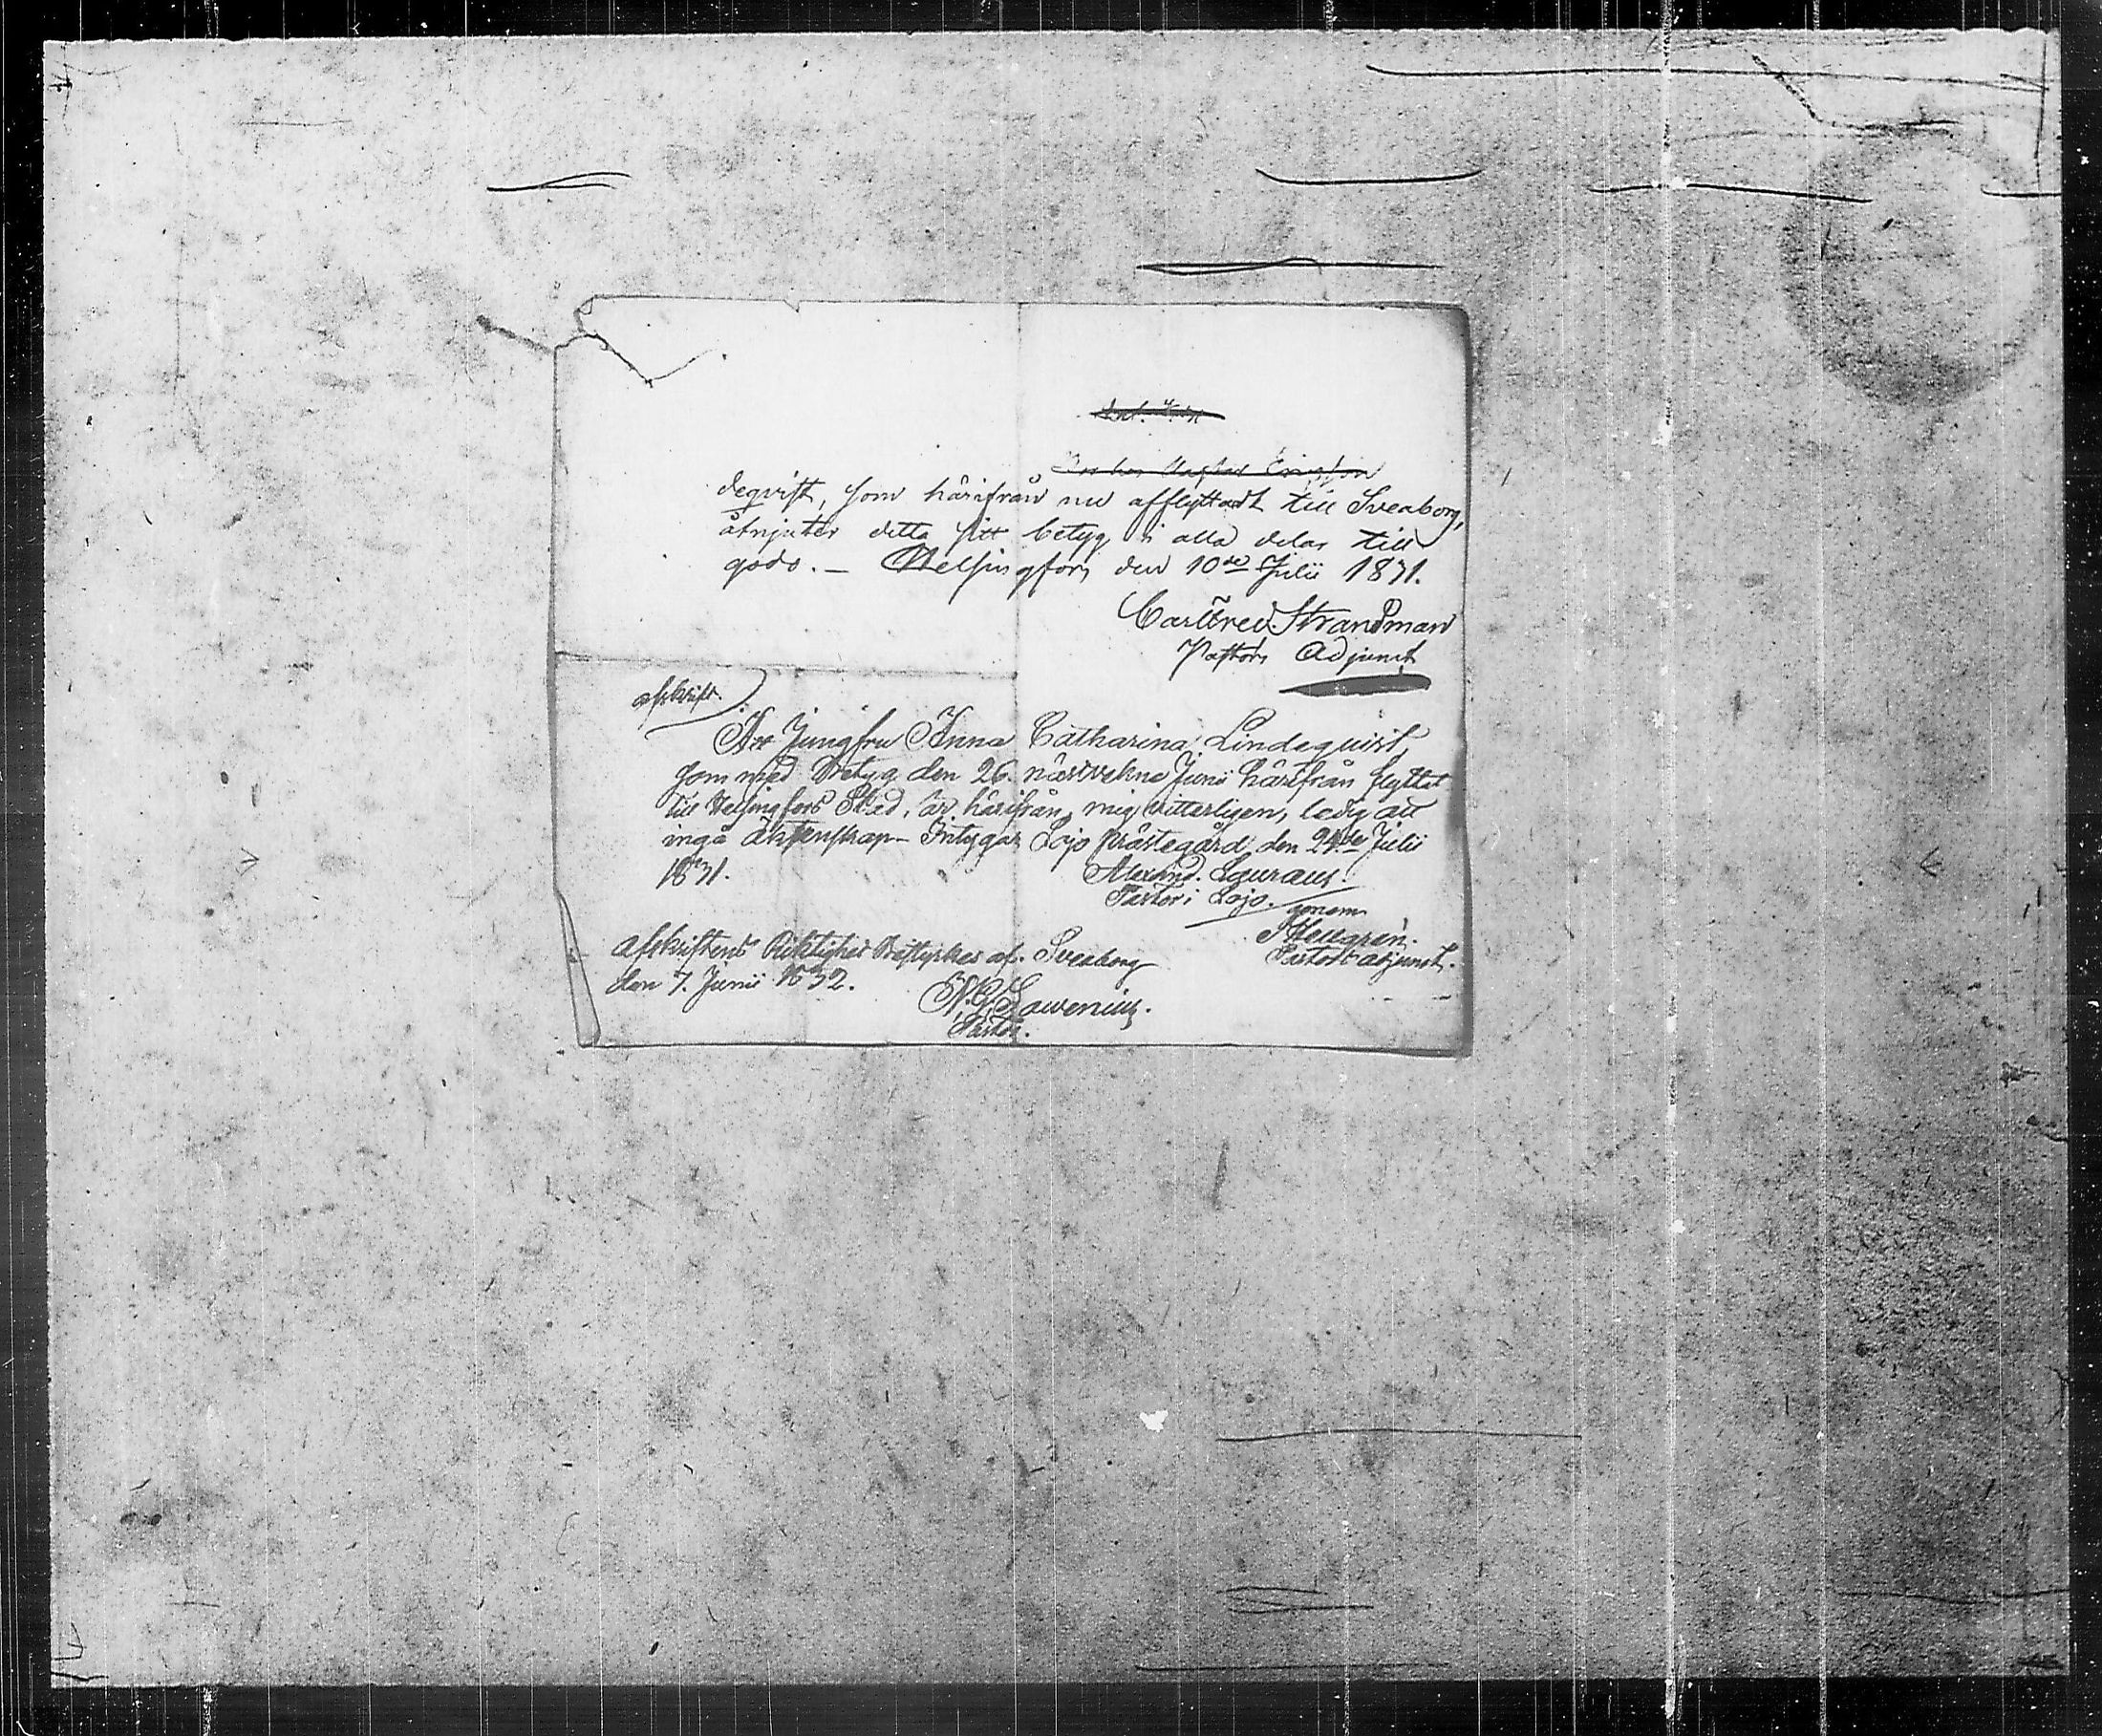 deqvist, som härifrån nu afflyttadt till Sveaborg,
åtnjuter detta sitt betyg i alla delar till
godo. — Helsingfors den 10de Julii 1831.
Carl Fred. Strandman
Pastors Adjunct
afskrift.
Att Jungfru Anna Catharina Lindequist,
som med Betyg den 26. nästvekne Junii härifrån flyttat
till Helsingfors Stad, är härifrån, mig vitterligen, ledig att
ingå äktenskap – Intygar Lojo Prästegård den 24de Julii
1831.
Alexand. Lauraeus.
Pastor i Lojo.
genom
Hellgren.
Pastors adjunct.
Afskriftens Riktighet Bestyrkes af. Sveaborg
den 7. Junii 1832.
N. G. Lawenius.
Pastor.